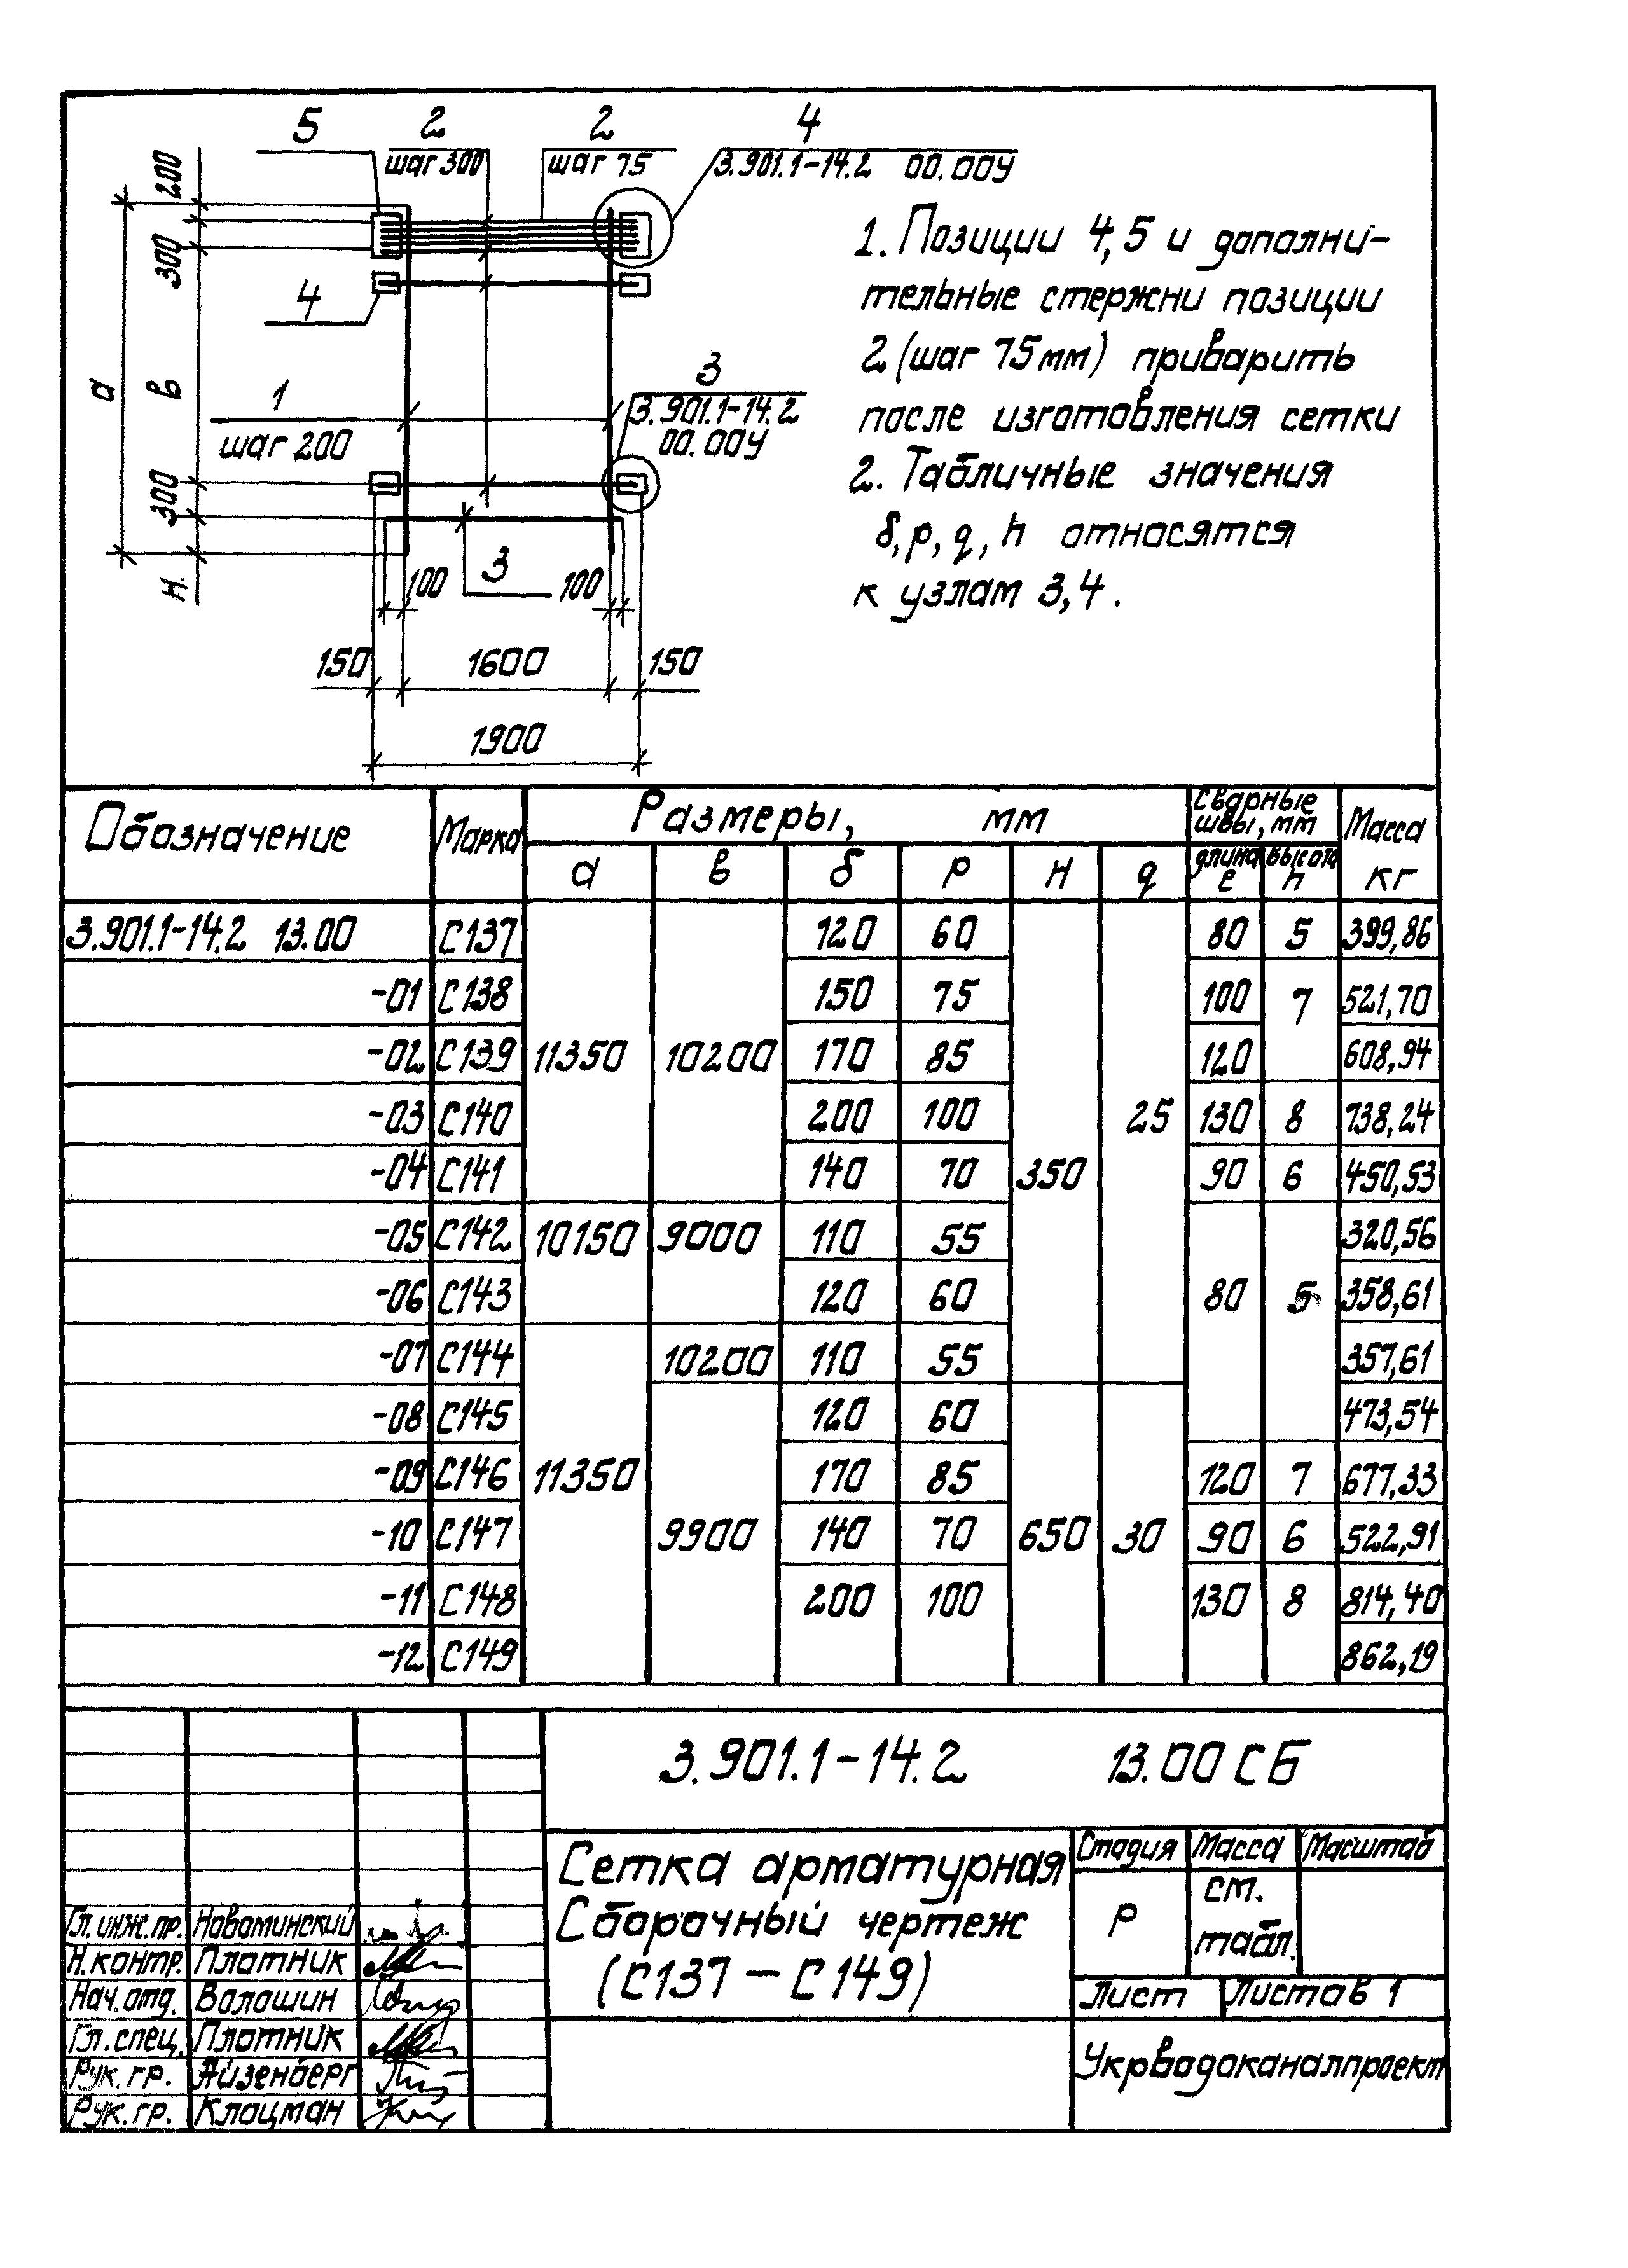 5
2
шаг 300
2
шаг 75
4
3.901.1-14.2 00.00У
200
300
а
в
300
н
4
1
шаг 200
3
3.901.1-14.2
00.00У
3
100
100
150
1600
150
1900
1. Позиции 4,5 и дополни-
тельные стержни позиции
2 (шаг 75мм) приварить
после изготовления сетки
2. Табличные значения
б, р, q, h относятся
к узлам 3,4.
Обозначение Марка Размеры, мм Сварные швы, мм Масса кг
а в б р н q длина е высота h
3.901.1-14.2 13.00 С137 120 60 80 5 399,86
-01 С138 150 75 100 7 521,70
-02 С139 11350 10200 170 85 120 608,94
-03 С140 200 100 25 130 8 738,24
-04 С141 140 70 350 90 6 450,53
-05 С142 10150 9000 110 55 320,56
-06 С143 120 60 80 5 358,61
-07 С144 10200 110 55 357,61
-08 С145 120 60 473,54
-09 С146 11350 170 85 120 7 677,33
-10 С147 9900 140 70 650 30 90 6 522,91
-11 С148 200 100 130 8 814,40
-12 С149 862,19
3.901.1-14.2 13.00 СБ
Сетка арматурная
Сборочный чертеж
(С137 - С149)
Стадия Масса Масштаб
Р см. табл.
Лист Листов 1
Укрводоканалпроект
Гл. инж. пр. Новоминский
Н. контр. Плотник
Нач. отд. Волошин
Гл. спец. Плотник
Рук. гр. Айзенберг
Рук. гр. Клоцман